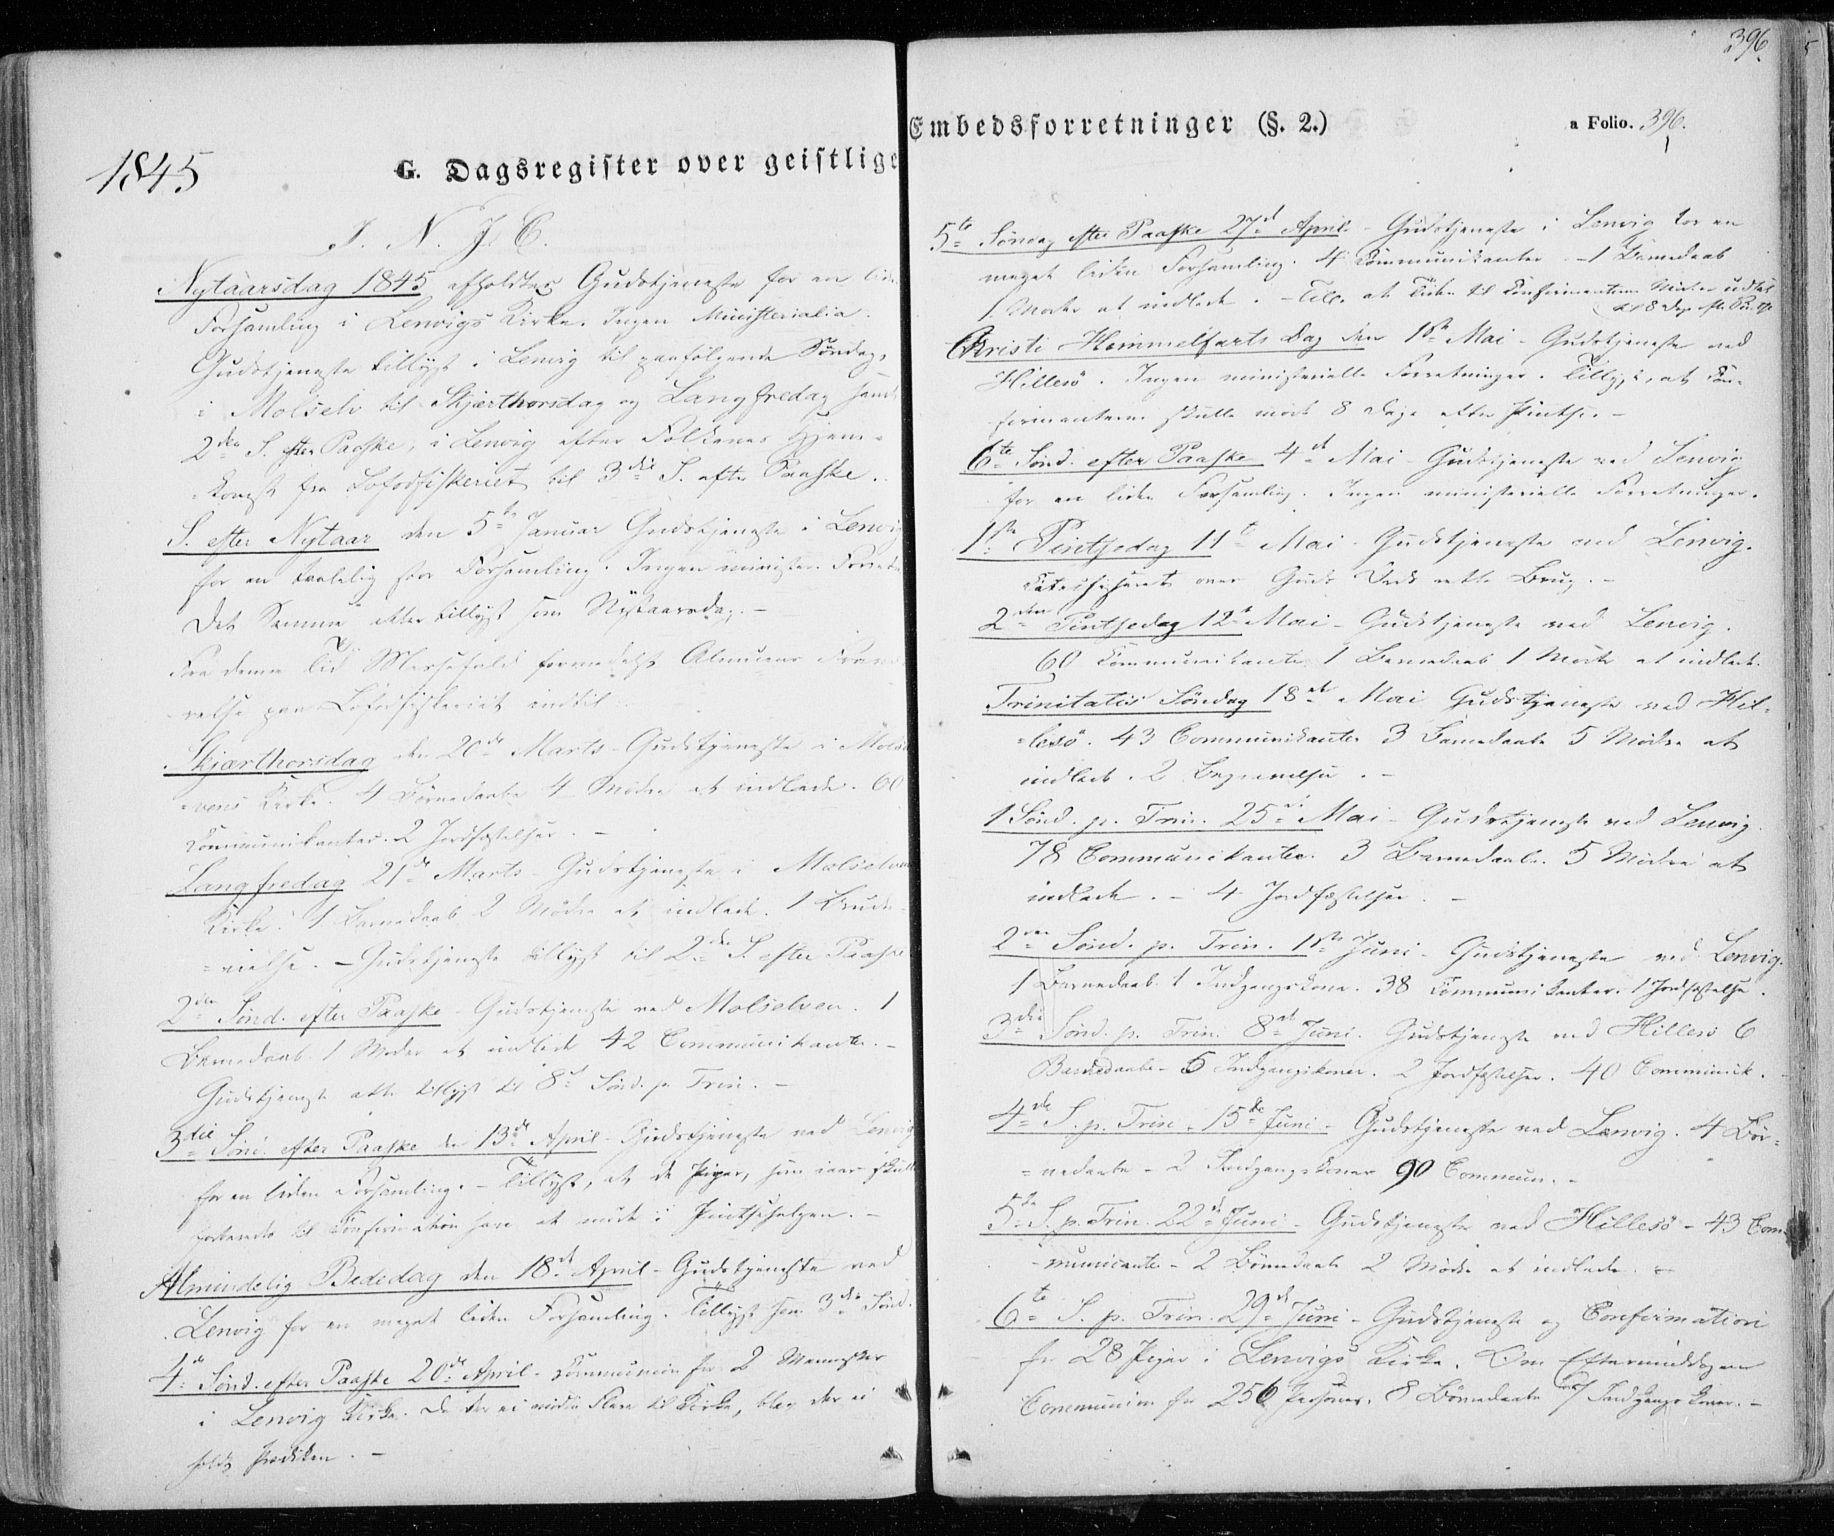 1845
G. Dagsregister over geistlige
I. N. J. C.
Nytaarsdag 1845 afholdtes Gudstjeneste for en liden
Forsamling i Lenvigs Kirke. Ingen Ministerialia.
Gudstjeneste tillyst i Lenvig til paafølgende Søndag,
i Molselv til Skjærthorsdag og Langfredag samt
2den S. efter Paaske, i Lenvig efter Folkenes Hjem-
komst fra Lofodfiskeriet til 3die S. efter Paaske.
S. efter Nytaar den 5te Januar Gudstjeneste i Lenvig
for en taalelig stor Forsamling. Ingen minister. Forretn.
Det Samme efter tillyst som Nytaarsdag. -
Fra denne Tid Messefald formedelst Almuens Fravæ-
relse paa Lofodfiskeriet indtil
Skjærthorsdag den 20de Marts - Gudstjeneste i Molsel-
vens Kirke. 4 Børnedaabe 4 Mødre at indlede. 60
Communikanter. 2 Jordfæstelser. -
Langfredag 21de Marts - Gudstjeneste i Molselven
Kirke. 1 Barnedaab 2 Mødre at indlede. 1 Brude-
vielse. - Gudstjeneste tillyst til 2den S. efter Paaske
2den Sønd. efter Paaske - Gudstjeneste ved Molselven. 1
Barnedaab 1 Moder at indlede 42 Communikanter. -
Gudstjeneste atter tillyst til 8de Sønd. p. Trin. -
3die Sønd. efter Paaske den 13de April - Gudstjeneste ved Lenvig
for en liden Forsamling. - Tillyst, at de Piger, som iaar skulle
forberedes til Confirmation have at møde i Pintsehelgen. -
Almindelig Bededag den 18de April - Gudstjeneste ved
Lenvig for en meget liden Forsamling. Tillyst som 3die Sønd.
4de Sønd. efter Paaske 20de April - Communion for 2 Mennesker
i Lenvig Kirke. Da der ei mødte Flere til Kirke, blev der ei
holdt Prædiken. -
396.
Embedsforretninger (§. 2.)
a Folio. 396.
5te Søndag efter Paaske 27de April - Gudstjeneste i Lenvig for en
meget liden Forsamling. 4 Communikanter - 1 Barnedaab
1 Moder at indlede. - Till. at Tiden til Confirmanternes Møde udsat
til 8 Dage efter Pintse.
Christi Himmelfarts Dag den 1ste Mai - Gudstjeneste ved
Hillesö. Ingen ministerielle Forretninger. Tillyst, at Con-
firmanterne skulle møde 8 Dage efter Pintse. -
6te Sønd. efter Paaske 4de Mai - Gudstjeneste ved Lenvig
for en liden Forsamling. Ingen ministerielle Forretninger.
1ste Pintsedag 11te Mai - Gudstjeneste ved Lenvig.
Catechiseret over Guds Ords rette Brug. -
2den Pintsedag 12te Mai - Gudstjeneste ved Lenvig.
60 Communikanter 1 Barnedaab 1 Moder at indlede.
Trinitatis Søndag 18de Mai Gudstjeneste ved Hil-
lesö. 43 Communikanter 3 Barnedaabe 5 Mødre at
indlede. 2 Begravelser. -
1 Sønd. p. Trin. 25de Mai - Gudstjeneste ved Lenvig.
78 Communikanter. 3 Barnedaabe. 5 Mødre at
indlede. - 4 Jordfæstelser. -
2den Sønd. p. Trin. 1ste Juni - Gudstjeneste ved Lenvig.
1 Barnedaab 1 Indgangskone. 38 Communikanter. 1 Jordfæstelse.
3die Sønd. p. Trin. 8de Juni. Gudstjeneste ved Hillesö 6
Barnedaabe - 5 Indgangskoner. 2 Jordfæstelser. 40 Communik.
4de S. p. Trin. 15de Juni - Gudstjeneste ved Lenvig. 4 Bør-
nedaabe - 2 Indgangskoner 90 Commun. -
5te S. p. Trin. 22de Juni - Gudstjeneste ved Hillesö - 43 Com-
municanter - 2 Børnedaabe 2 Mødre at indlede.
6te S. p. Trin. 29de Juni - Gudstjeneste og Confirmation
for 28 Piger i Lenvigs Kirke. Om Eftermiddagen
Communion for 256 Personer. 8 Børnedaabe 7 Indgangskoner. -